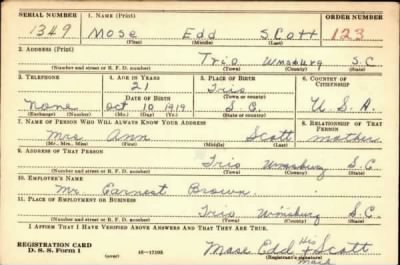 SERIAL NUMBER 1. NAME (Print) ORDER NUMBER
1349 Mose Edd Scott 123
(First) (Middle) (Last)
2. ADDRESS (Print)
Trio Wmsburg S.C
(Number and street or R. F. D. number) (Town) (County) (State)
3. TELEPHONE 4. AGE IN YEARS 5. PLACE OF BIRTH 6. COUNTRY OF CITIZENSHIP
21 Trio
DATE OF BIRTH (Town or county)
None Oct 10 1919 S.C. U.S.A.
(Exchange) (Number) (Mo.) (Day) (Yr.) (State or country)
7. NAME OF PERSON WHO WILL ALWAYS KNOW YOUR ADDRESS 8. RELATIONSHIP OF THAT PERSON
Mrs. Ann Scott mother
(Mr., Mrs., Miss) (First) (Middle) (Last)
9. ADDRESS OF THAT PERSON
Trio Wmsburg S.C.
(Number and street or R. F. D. number) (Town) (County) (State)
10. EMPLOYER'S NAME
Mr. Earnest Brown
11. PLACE OF EMPLOYMENT OR BUSINESS
Trio Wmsburg S.C.
(Number and street or R. F. D. number) (Town) (County) (State)
I AFFIRM THAT I HAVE VERIFIED ABOVE ANSWERS AND THAT THEY ARE TRUE.
REGISTRATION CARD His
D. S. S. Form 1 (over) Mose Edd X Scott
(Registrant's signature)
Mark